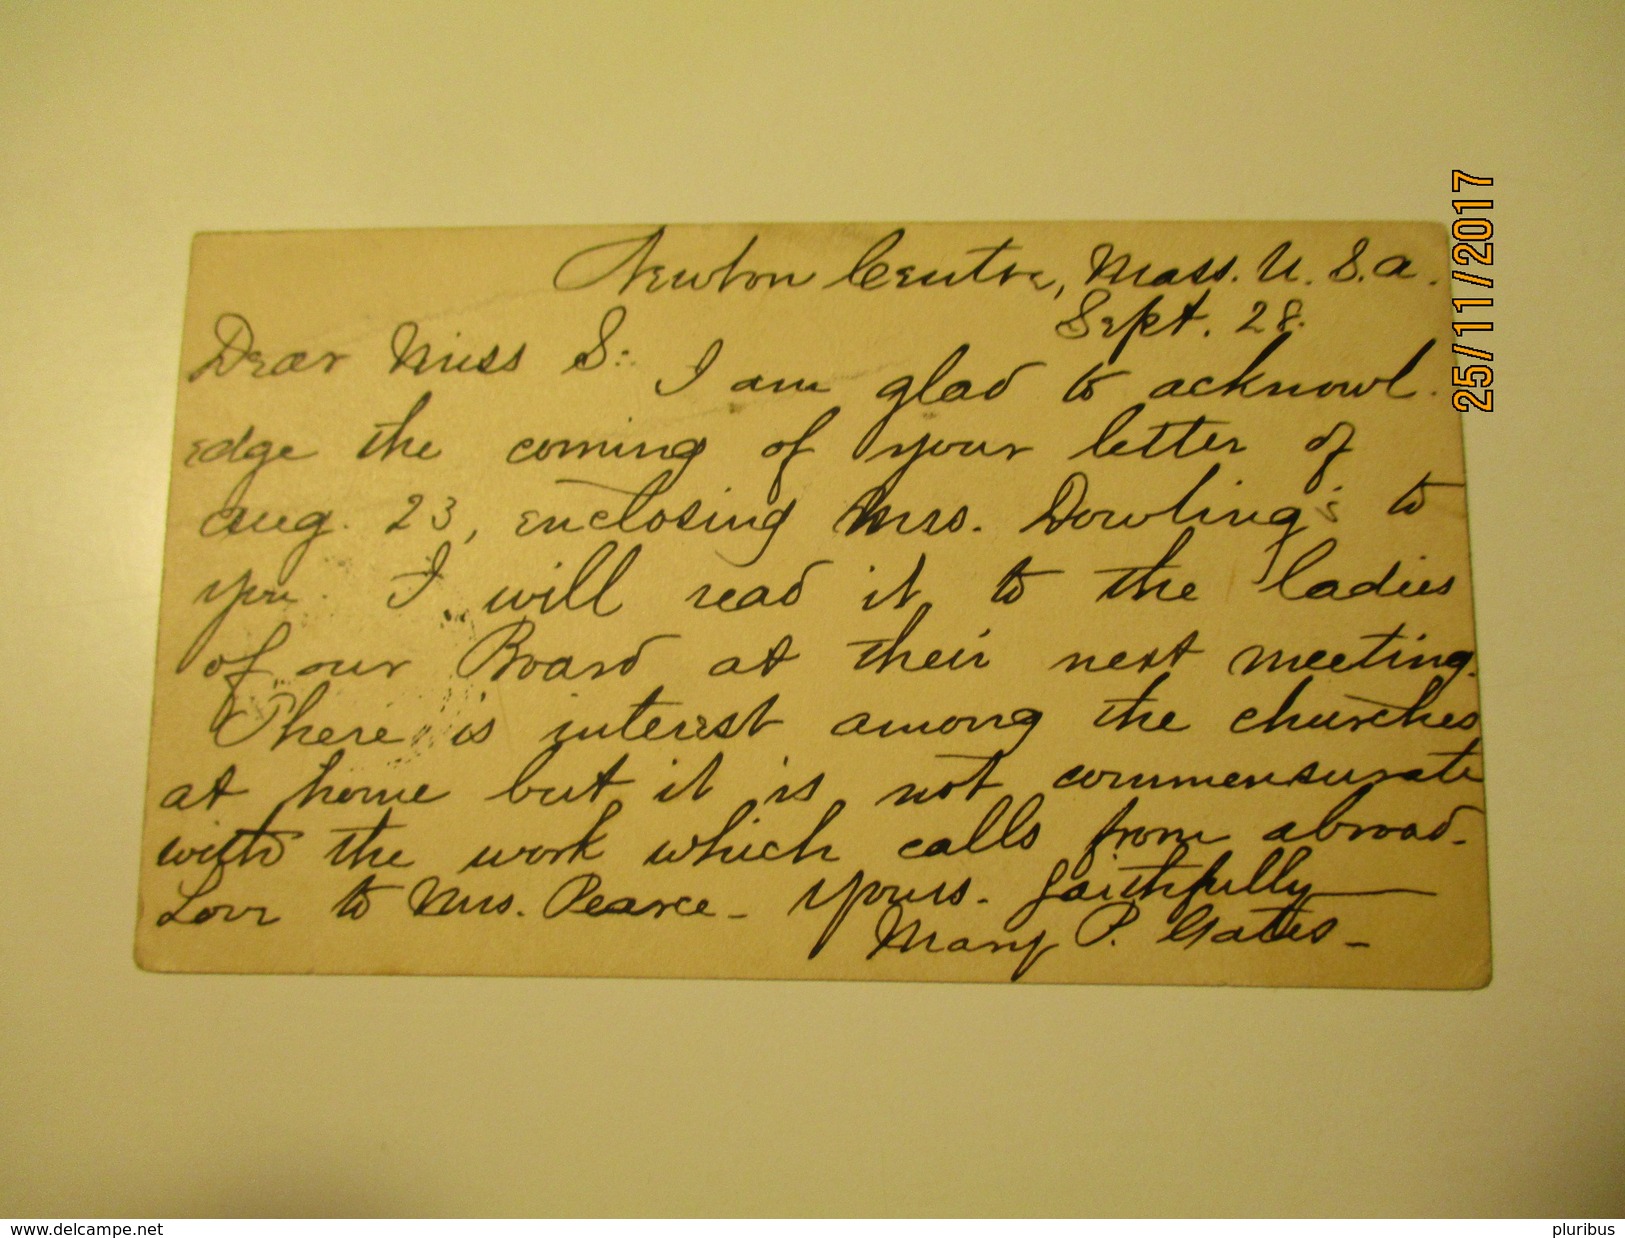 Newton Centre, Mass. U. S. A.
Sept. 28.
Dear Miss S:
I am glad to acknowl.
edge the coming of your letter of
Aug. 23, enclosing Mrs. Dowling's to
you. I will read it to the ladies
of our Board at their next meeting.
There is interest among the churches
at home but it is not commensurate
with the work which calls from abroad.
Love to Mrs. Pearce - Yours. faithfully
Mary P. Gates -
25/11/2017
www.delcampe.net
pluribus